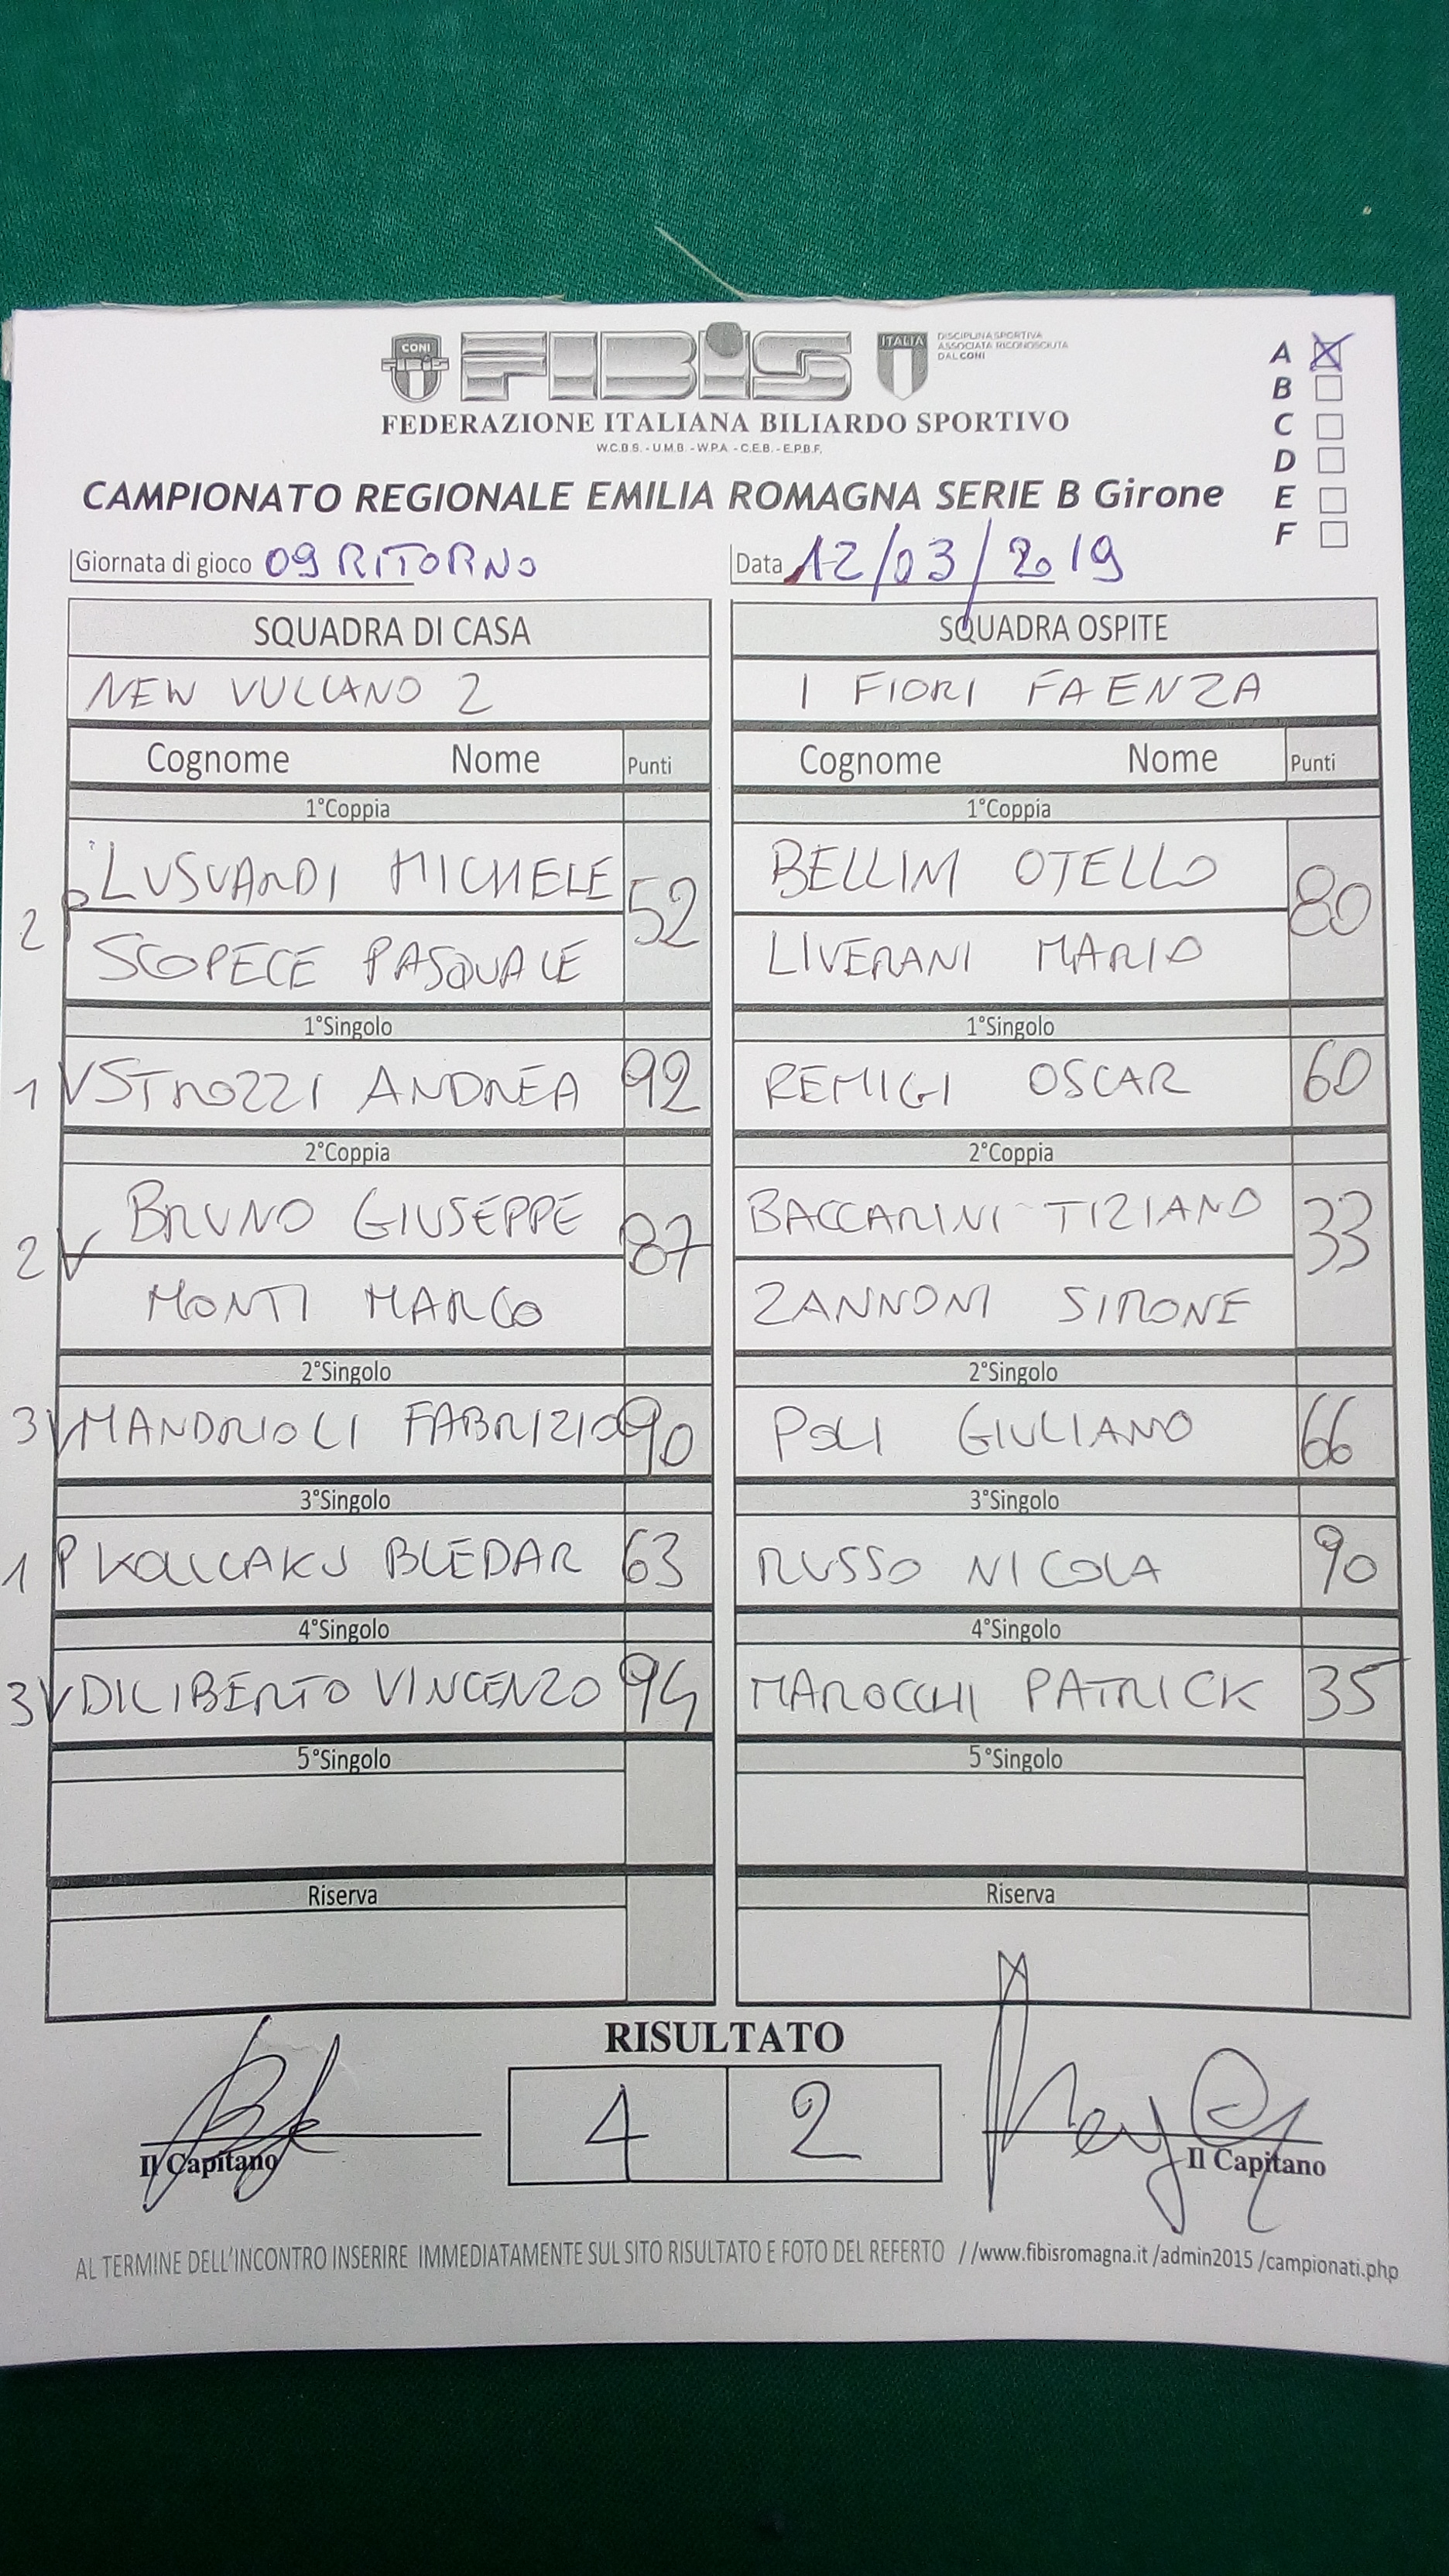 CONI
FIBIS
ITALIA
DISCIPLINA SPORTIVA
ASSOCIATA RICONOSCIUTA
DAL CONI
FEDERAZIONE ITALIANA BILIARDO SPORTIVO
W.C.B.S. - U.M.B. - W.P.A. - C.E.B. - E.P.B.F.
CAMPIONATO REGIONALE EMILIA ROMAGNA SERIE B Girone
A
B
C
D
E
F
Giornata di gioco 09 RITORNO Data 12/03/2019
SQUADRA DI CASA SQUADRA OSPITE
NEW VULCANO 2 I FIORI FAENZA
Cognome Nome Punti Cognome Nome Punti
1°Coppia 1°Coppia
LUSVARDI MICHELE BELLINI OTELLO
2 P 52 80
SCOPECE PASQUALE LIVERANI MARIO
1°Singolo 1°Singolo
1 V STROZZI ANDREA 92 REMIGI OSCAR 60
2°Coppia 2°Coppia
BRUNO GIUSEPPE BACCARINI TIZIANO
2 V 87 33
MONTI MARCO ZANNONI SIMONE
2°Singolo 2°Singolo
3 V MANDRIOLI FABRIZIO 90 POLI GIULIANO 66
3°Singolo 3°Singolo
1 P KOLLCAKU BLEDAR 63 RUSSO NICOLA 90
4°Singolo 4°Singolo
3 V DILIBERTO VINCENZO 94 MAROCCHI PATRICK 35
5°Singolo 5°Singolo
Riserva Riserva
RISULTATO
4 2
Il Capitano Il Capitano
AL TERMINE DELL'INCONTRO INSERIRE IMMEDIATAMENTE SUL SITO RISULTATO E FOTO DEL REFERTO //www.fibisromagna.it /admin2015 /campionati.php